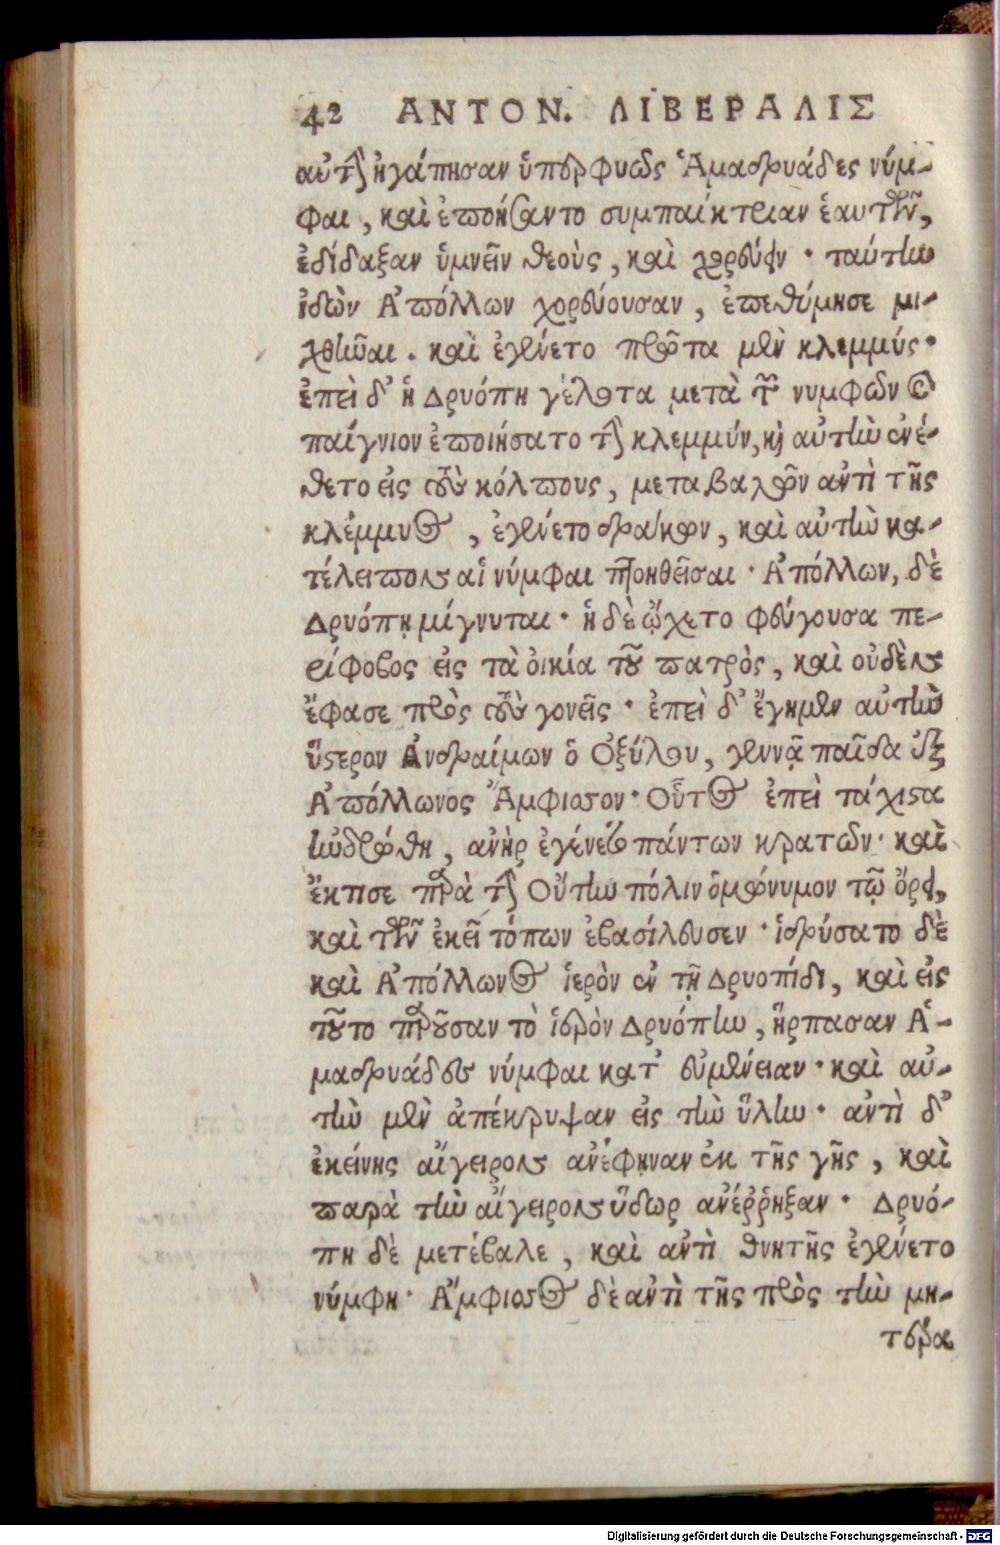 42 ΑΝΤΟΝ. ΛΙΒΕΡΑΛΙΣ
αὐτὴν ἠγάπησαν ὑπερφυῶς Ἁμαδρυάδες νύμ-
φαι, καὶ ἐποιήσαντο συμπαίκτριαν ἑαυτῶν,
ἐδίδαξαν ὑμνεῖν θεοὺς, καὶ χορεύειν· ταύτην
ἰδὼν Ἀπόλλων χορεύουσαν, ἐπεθύμησε μι-
χθῆναι. καὶ ἐγένετο πρῶτα μὲν κλεμμύς·
ἐπεὶ δ' ἡ Δρυόπη γέλωτα μετὰ τῶν νυμφῶν καὶ
παίγνιον ἐποιήσατο τὴν κλεμμύν, καὶ αὐτὴν ἐνέ-
θετο εἰς τοὺς κόλπους, μεταβαλὼν ἀντὶ τῆς
κλέμμυος, ἐγένετο δράκων, καὶ αὐτὴν κα-
τέλειπον αἱ νύμφαι πτοηθεῖσαι· Ἀπόλλων, δὲ
Δρυόπῃ μίγνυται· ἡ δὲ ᾤχετο φεύγουσα πε-
ρίφοβος εἰς τὰ οἰκία τοῦ πατρὸς, καὶ οὐδὲν
ἔφασε πρὸς τοὺς γονεῖς· ἐπεὶ δ' ἔγημεν αὐτὴν
ὕστερον Ἀνδραίμων ὁ Ὀξύλου, γεννᾷ παῖδα ἐξ
Ἀπόλλωνος Ἄμφισσον· Οὗτος ἐπεὶ τάχιστα
ἠνδρώθη, ἀνὴρ ἐγένετο πάντων κρατῶν· καὶ
ἔκτισε παρὰ τὴν Οὔτην πόλιν ὁμώνυμον τῷ ὄρει,
καὶ τῶν ἐκεῖ τόπων ἐβασίλευσεν· ἱδρύσατο δὲ
καὶ Ἀπόλλωνος ἱερὸν ἐν τῇ Δρυοπίδι, καὶ εἰς
τοῦτο παροῦσαν τὸ ἱερὸν Δρυόπην, ἥρπασαν Ἁ-
μαδρυάδες νύμφαι κατ' εὐμένειαν· καὶ αὐ-
τὴν μὲν ἀπέκρυψαν εἰς τὴν ὕλην· ἀντὶ δ'
ἐκείνης αἴγειρον ἀνέφηναν ἐκ τῆς γῆς, καὶ
παρὰ τὴν αἴγειρον ὕδωρ ἀνέῤῥηξαν· Δρυό-
πη δὲ μετέβαλε, καὶ ἀντὶ θνητῆς ἐγένετο
νύμφη· Ἄμφισσος δὲ ἀντὶ τῆς πρὸς τὴν μη-
τέρα
Digitalisierung gefördert durch die Deutsche Forschungsgemeinschaft - DFG